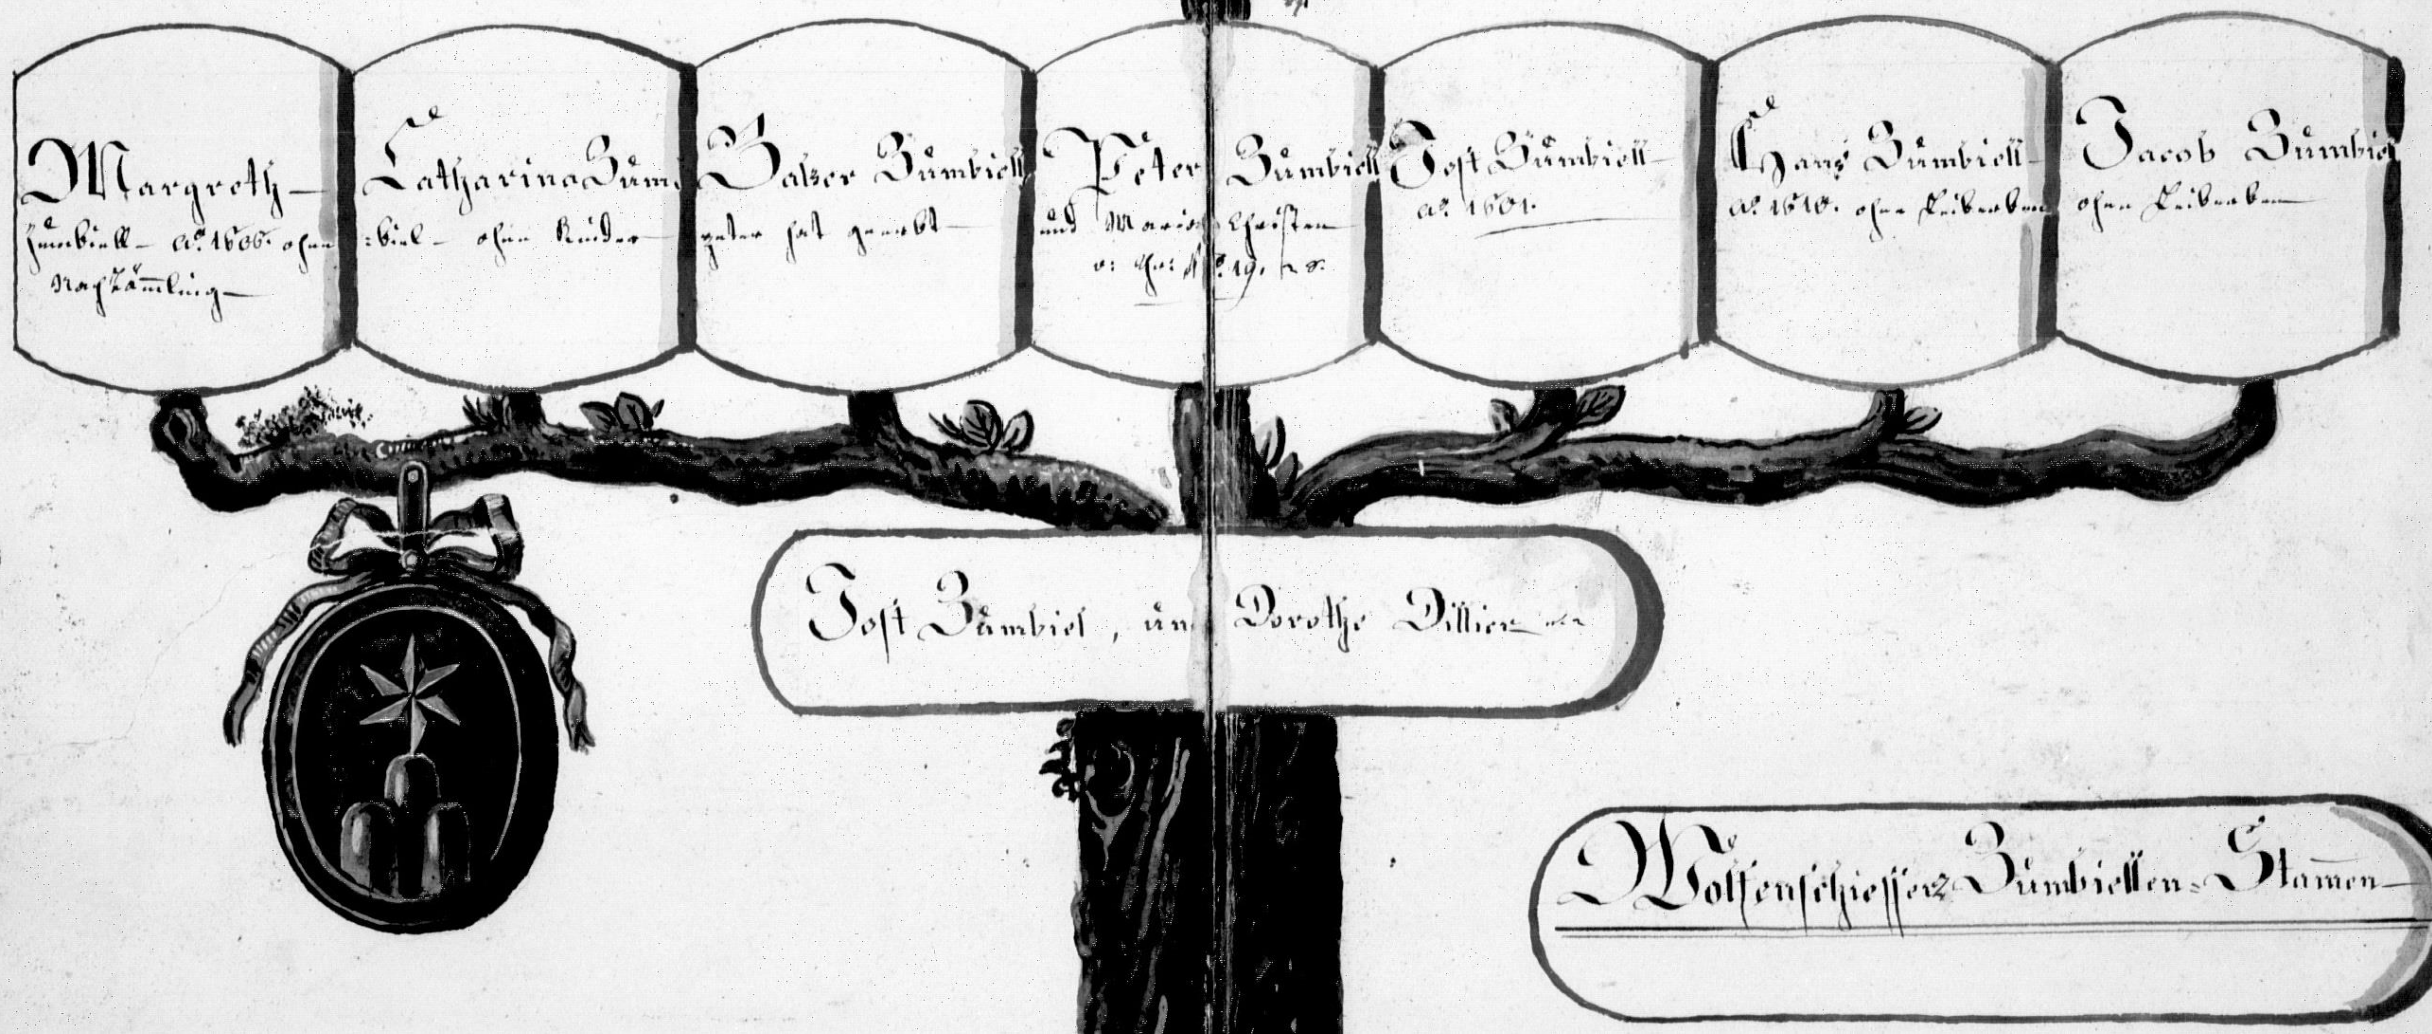 Margreth
Zumbiell A.º 1606. ohne
Nachkömmling
Catharina Zum
:biel ohne Kinder
Balzer Zumbiell
hat geerbt
Peter Zumbiell
und Maria Christen
Jost Zumbiell
A.º 1601.
Hans Zumbiell
A.º 1610. ohne Leibserben
Jacob Zumbiel
ohne Leibserben
Jost Zumbiel, und Dorothe Dillier
Wolfenschiesser Zumbiellen-Stammen